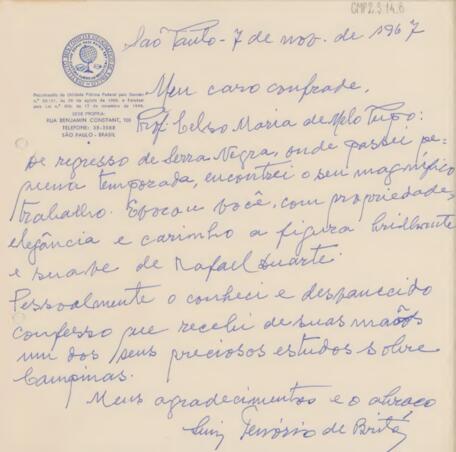 CMP2.3.14.6
São Paulo - 7 de nov. de 1967
Reconhecido de Utilidade Pública Federal pelo Decreto
SEDE PRÓPRIA:
RUA BENJAMIN CONSTANT, 158
TELEFONE: 32-3582
SÃO PAULO - BRASIL
Meu caro confrade,
Prof. Celso Maria de Melo Pupo:
De regresso de Serra Negra, onde passei pe-
quena temporada, encontrei o seu magnífico
trabalho. Evocou você, com propriedade,
elegância e carinho a figura brilhante
e suave de Rafael Duarte.
Pessoalmente o conheci e desvanecido
confesso que recebi de suas mãos
um dos seus preciosos estudos sobre
Campinas.
Meus agradecimentos e o abraço
Luiz Tenório de Brito